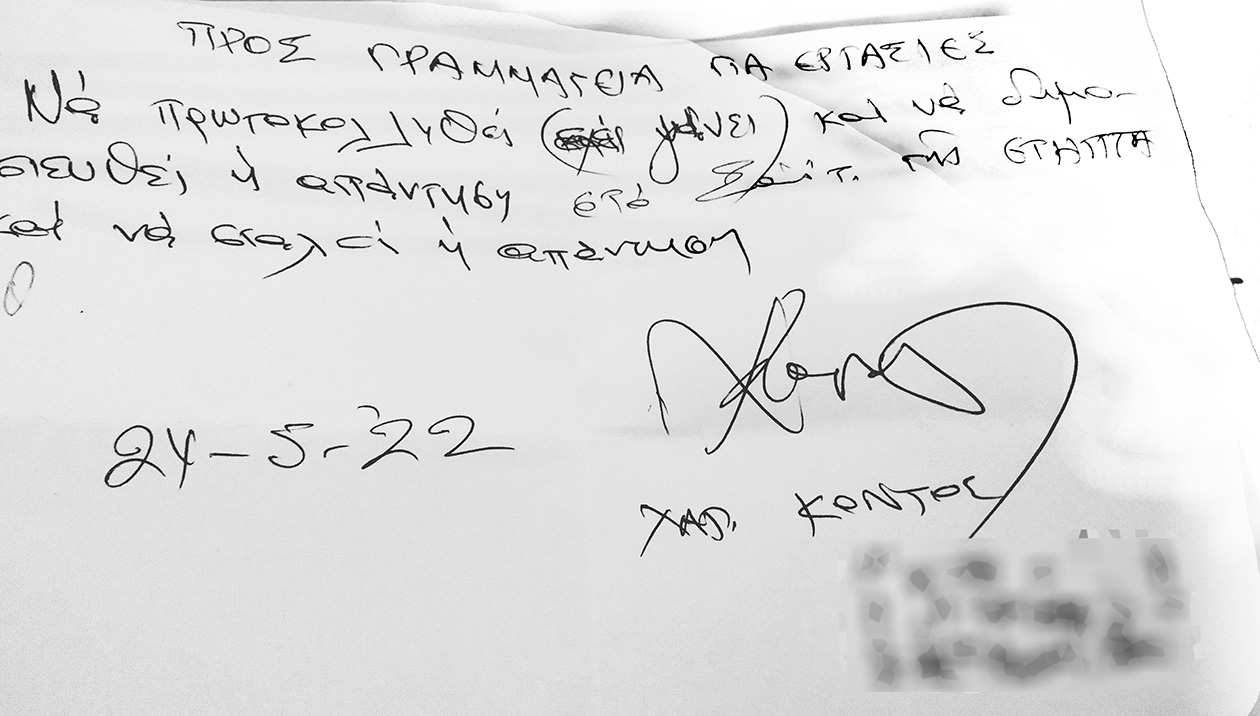 ΠΡΟΣ ΓΡΑΜΜΑΤΕΙΑ ΓΙΑ ΕΡΓΑΣΙΕΣ
Νά πρωτοκολληθεί ( γίνει) καί νά δημο-
σιευθεί ἡ απάντηση στό Σάιτ. τῆς ΕΤΗΠΤΑ
καί νά σταλεί ἡ απάντηση
24-5-22
ΧΑΡ. ΚΟΝΤΟΣ